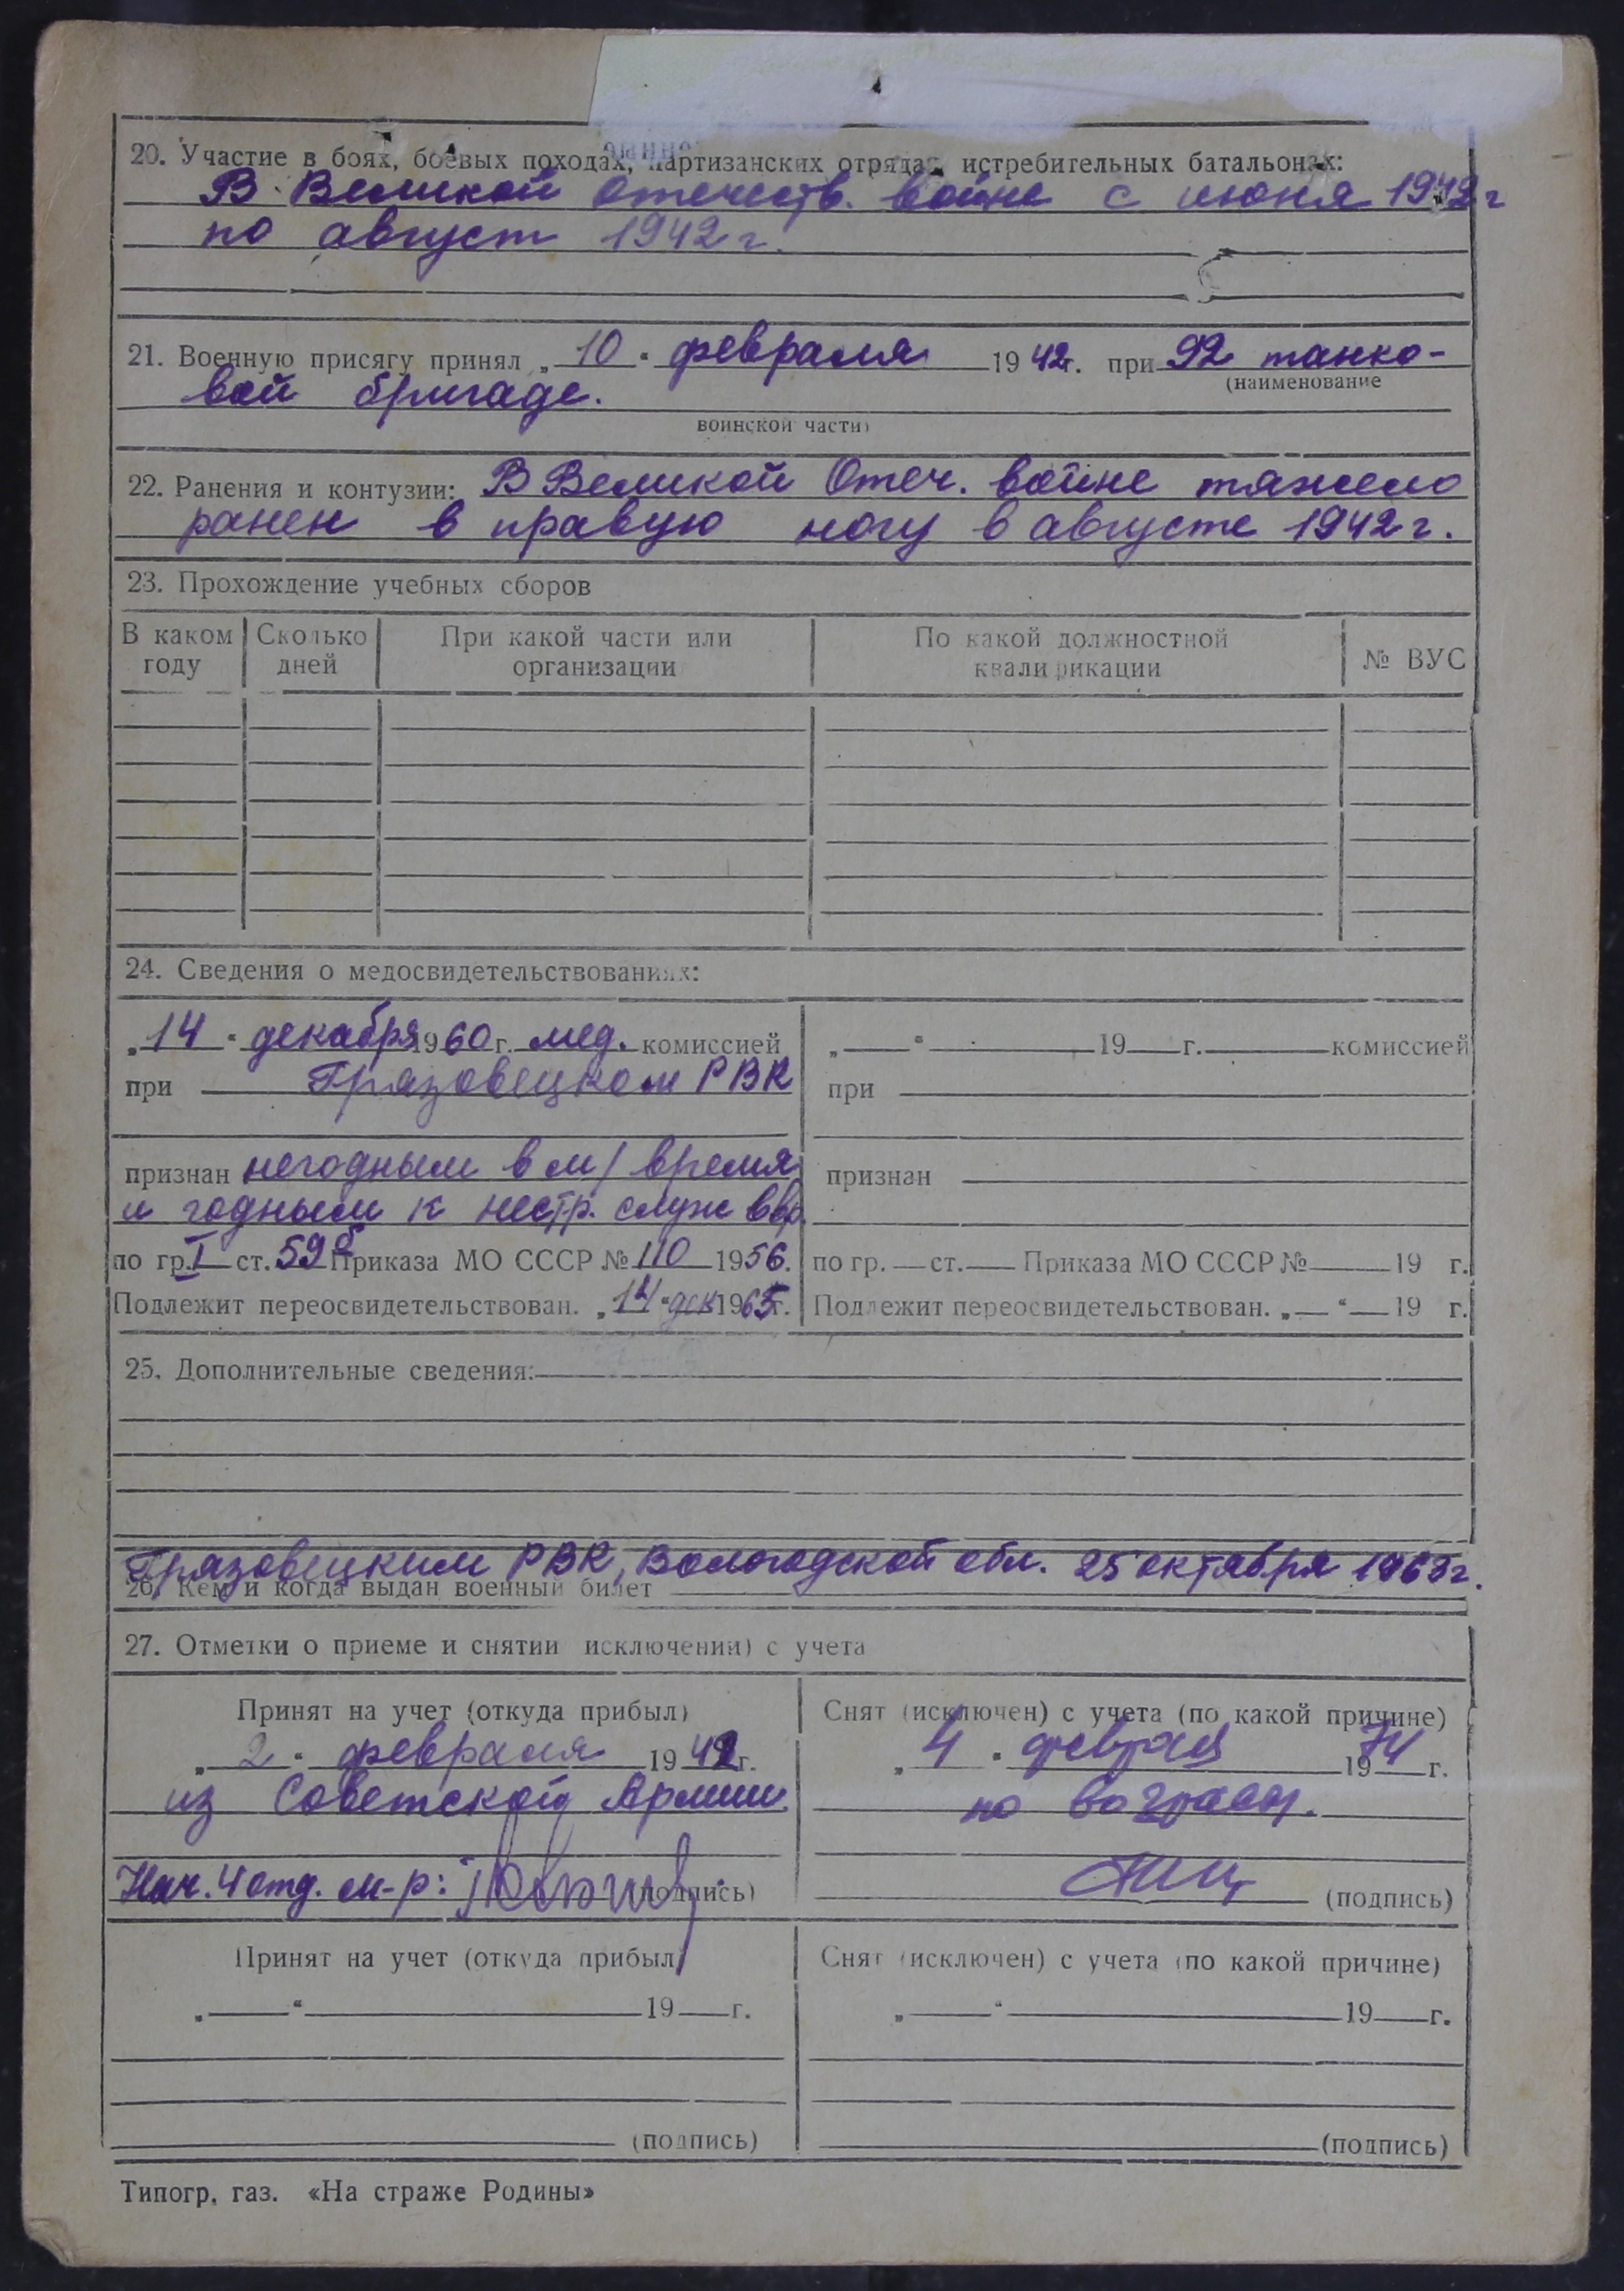 20. Участие в боях, боевых походах, партизанских отрядах, истребительных батальонах:
В Великой отечеств. войне с июня 1942 г
по август 1942 г.
21. Военную присягу принял „ 10 “ февраля 1942 г. при 92 танко-
(наименование
вой бригаде.
воинской части)
22. Ранения и контузии: В Великой Отеч. войне тяжело
ранен в правую ногу в августе 1942 г.
23. Прохождение учебных сборов
В каком году Сколько дней При какой части или организации По какой должностной квалификации № ВУС
24. Сведения о медосвидетельствованиях:
„14“ декабря 1960 г. мед. комиссией
при Грязовецком РВК
признан негодным в м/ время
и годным к нестр. служ в вр.
по гр. I ст. 59б Приказа МО СССР № 110 1956.
Подлежит переосвидетельствован. „14“ дек 1965 г.
„ “ 19 г. комиссией
при
признан
по гр. ст. Приказа МО СССР № 19 г.
Подлежит переосвидетельствован. „ “ 19 г.
25. Дополнительные сведения:
Грязовецким РВК, Вологодской обл. 25 октября 1963 г.
26. Кем и когда выдан военный билет
27. Отметки о приеме и снятии исключении) с учета
Принят на учет (откуда прибыл)
„ 2 “ февраля 1942 г.
из Советской Армии
Нач. 4 отд. м-р: (подпись)
Снят (исключен) с учета (по какой причине)
„ 4 “ февраля 1974 г.
по возрасту.
(подпись)
Принят на учет (откуда прибыл)
„ “ 19 г.
(подпись)
Снят (исключен) с учета (по какой причине)
„ “ 19 г.
(подпись)
Типогр. газ. «На страже Родины»